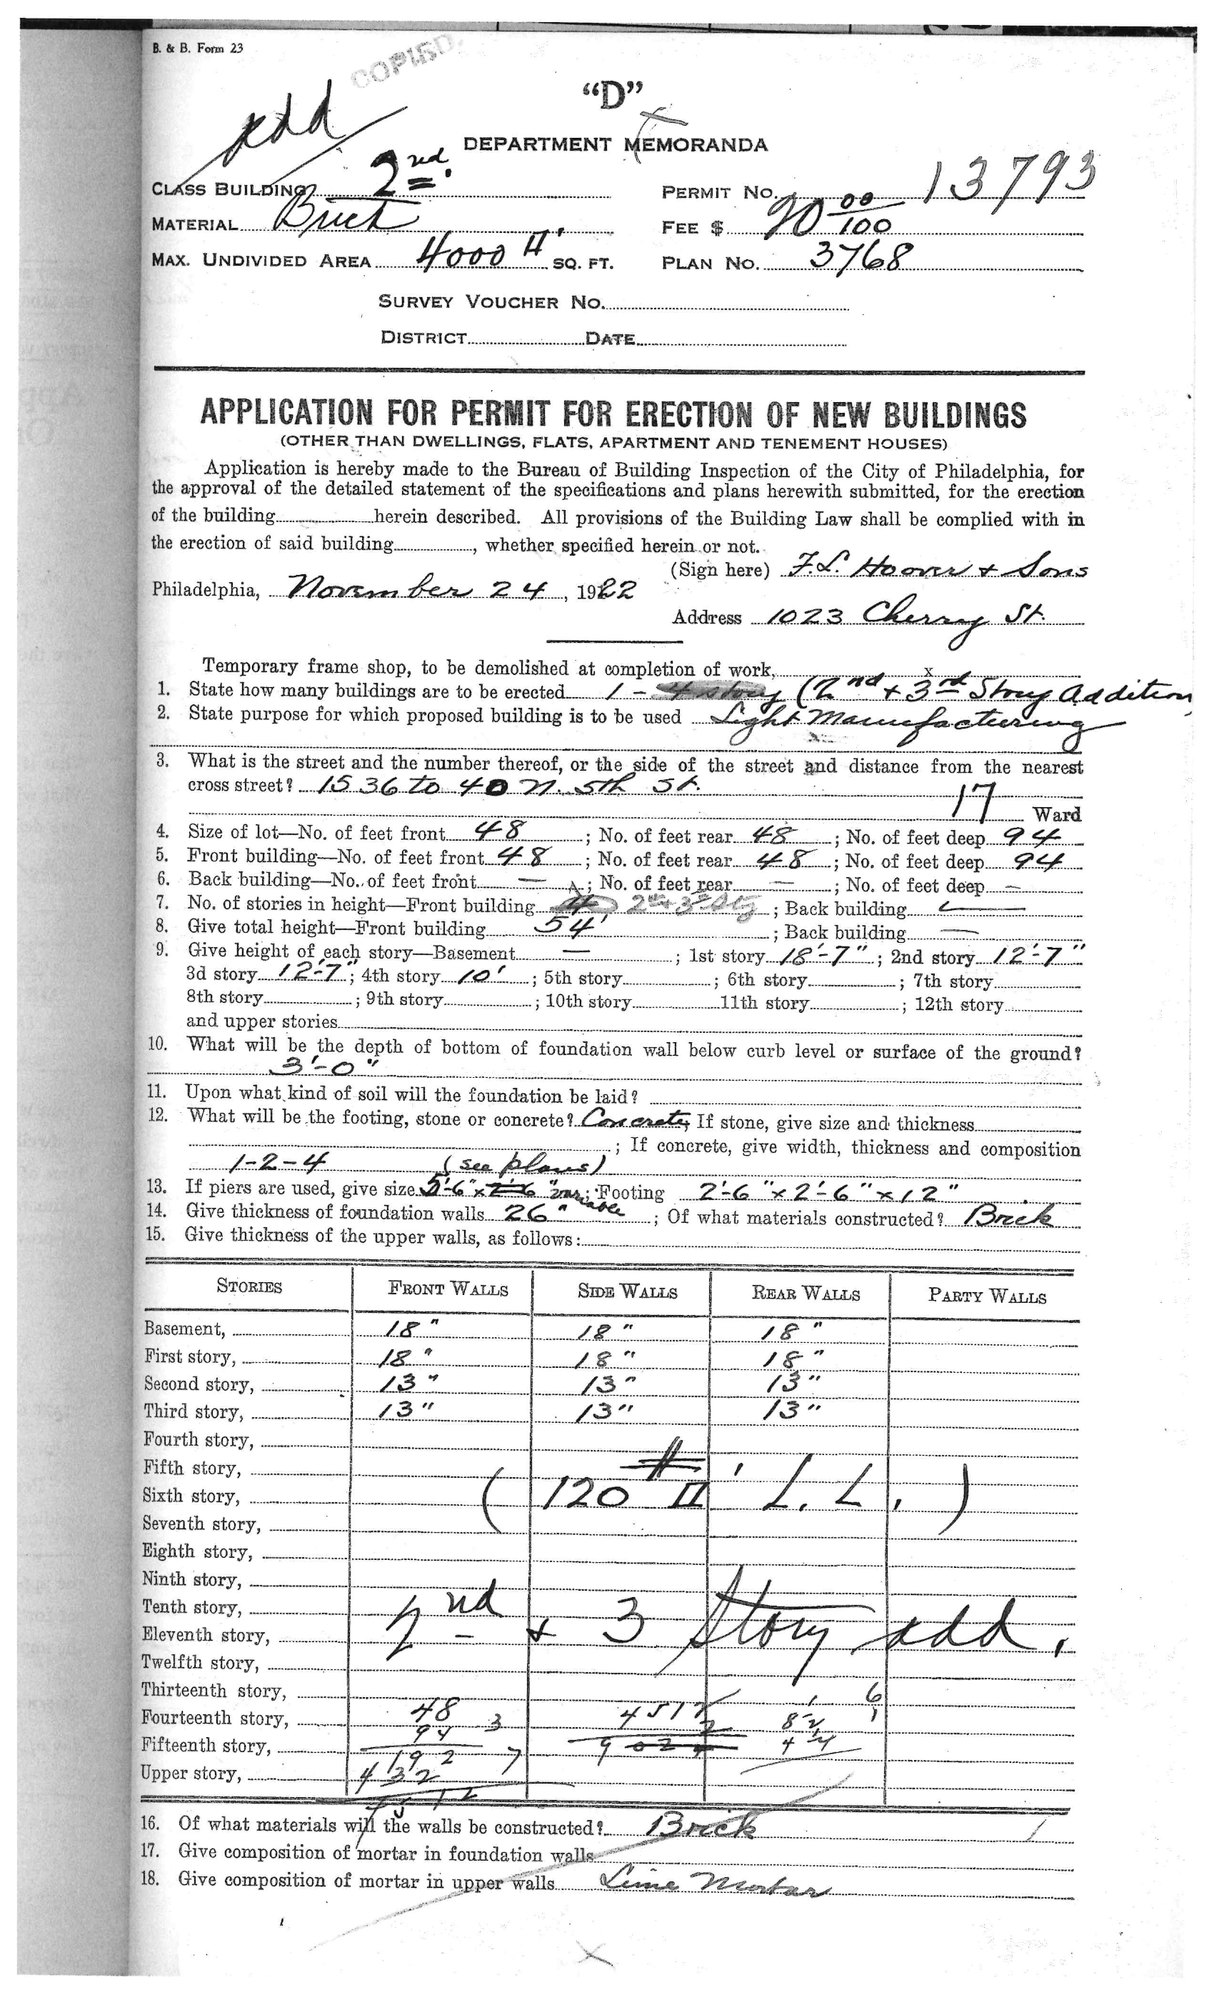 B. & B. Form 23
COPIED.
"D"
add
DEPARTMENT MEMORANDA
CLASS BUILDING 2nd. PERMIT NO. 13793
MATERIAL Brick FEE $ 20 00/100
MAX. UNDIVIDED AREA 4000 □' SQ. FT. PLAN NO. 3768
SURVEY VOUCHER NO.
DISTRICT DATE
APPLICATION FOR PERMIT FOR ERECTION OF NEW BUILDINGS
(OTHER THAN DWELLINGS, FLATS, APARTMENT AND TENEMENT HOUSES)
Application is hereby made to the Bureau of Building Inspection of the City of Philadelphia, for
the approval of the detailed statement of the specifications and plans herewith submitted, for the erection
of the building herein described. All provisions of the Building Law shall be complied with in
the erection of said building, whether specified herein or not.
(Sign here) F. L. Hoover + Sons
Philadelphia, November 24, 1922
Address 1023 Cherry St.
Temporary frame shop, to be demolished at completion of work,
1. State how many buildings are to be erected 1 - 4 story (2nd + 3rd Story Addition
2. State purpose for which proposed building is to be used Light Manufacturing
3. What is the street and the number thereof, or the side of the street and distance from the nearest
cross street? 1536 to 40 N. 5th St.
17 Ward
4. Size of lot—No. of feet front 48; No. of feet rear 48; No. of feet deep 94
5. Front building—No. of feet front 48; No. of feet rear 48; No. of feet deep 94
6. Back building—No. of feet front —; No. of feet rear —; No. of feet deep —
7. No. of stories in height—Front building 4 2nd + 3rd Sty; Back building —
8. Give total height—Front building 54'; Back building —
9. Give height of each story—Basement —; 1st story 18'-7"; 2nd story 12'-7"
3d story 12'-7"; 4th story 10'; 5th story; 6th story; 7th story
8th story; 9th story; 10th story 11th story; 12th story
and upper stories
10. What will be the depth of bottom of foundation wall below curb level or surface of the ground?
3'-0"
11. Upon what kind of soil will the foundation be laid?
12. What will be the footing, stone or concrete? Concrete; If stone, give size and thickness
; If concrete, give width, thickness and composition
1-2-4 (see plans)
13. If piers are used, give size 5'-6" x 2'-6" variable; Footing 2'-6" x 2'-6" x 12"
14. Give thickness of foundation walls 26"; Of what materials constructed? Brick
15. Give thickness of the upper walls, as follows:
STORIES FRONT WALLS SIDE WALLS REAR WALLS PARTY WALLS
Basement, 18" 18" 18"
First story, 18" 18" 18"
Second story, 13" 13" 13"
Third story, 13" 13" 13"
Fourth story,
Fifth story,
Sixth story, ( 120 # □' L. L. )
Seventh story,
Eighth story,
Ninth story,
Tenth story,
Eleventh story, 2nd + 3 Story add.
Twelfth story,
Thirteenth story,
Fourteenth story, 48 4512
Fifteenth story, 94 3 2
192 7 9024
Upper story, 432
4512
16. Of what materials will the walls be constructed? Brick
17. Give composition of mortar in foundation walls
18. Give composition of mortar in upper walls Lime Mortar